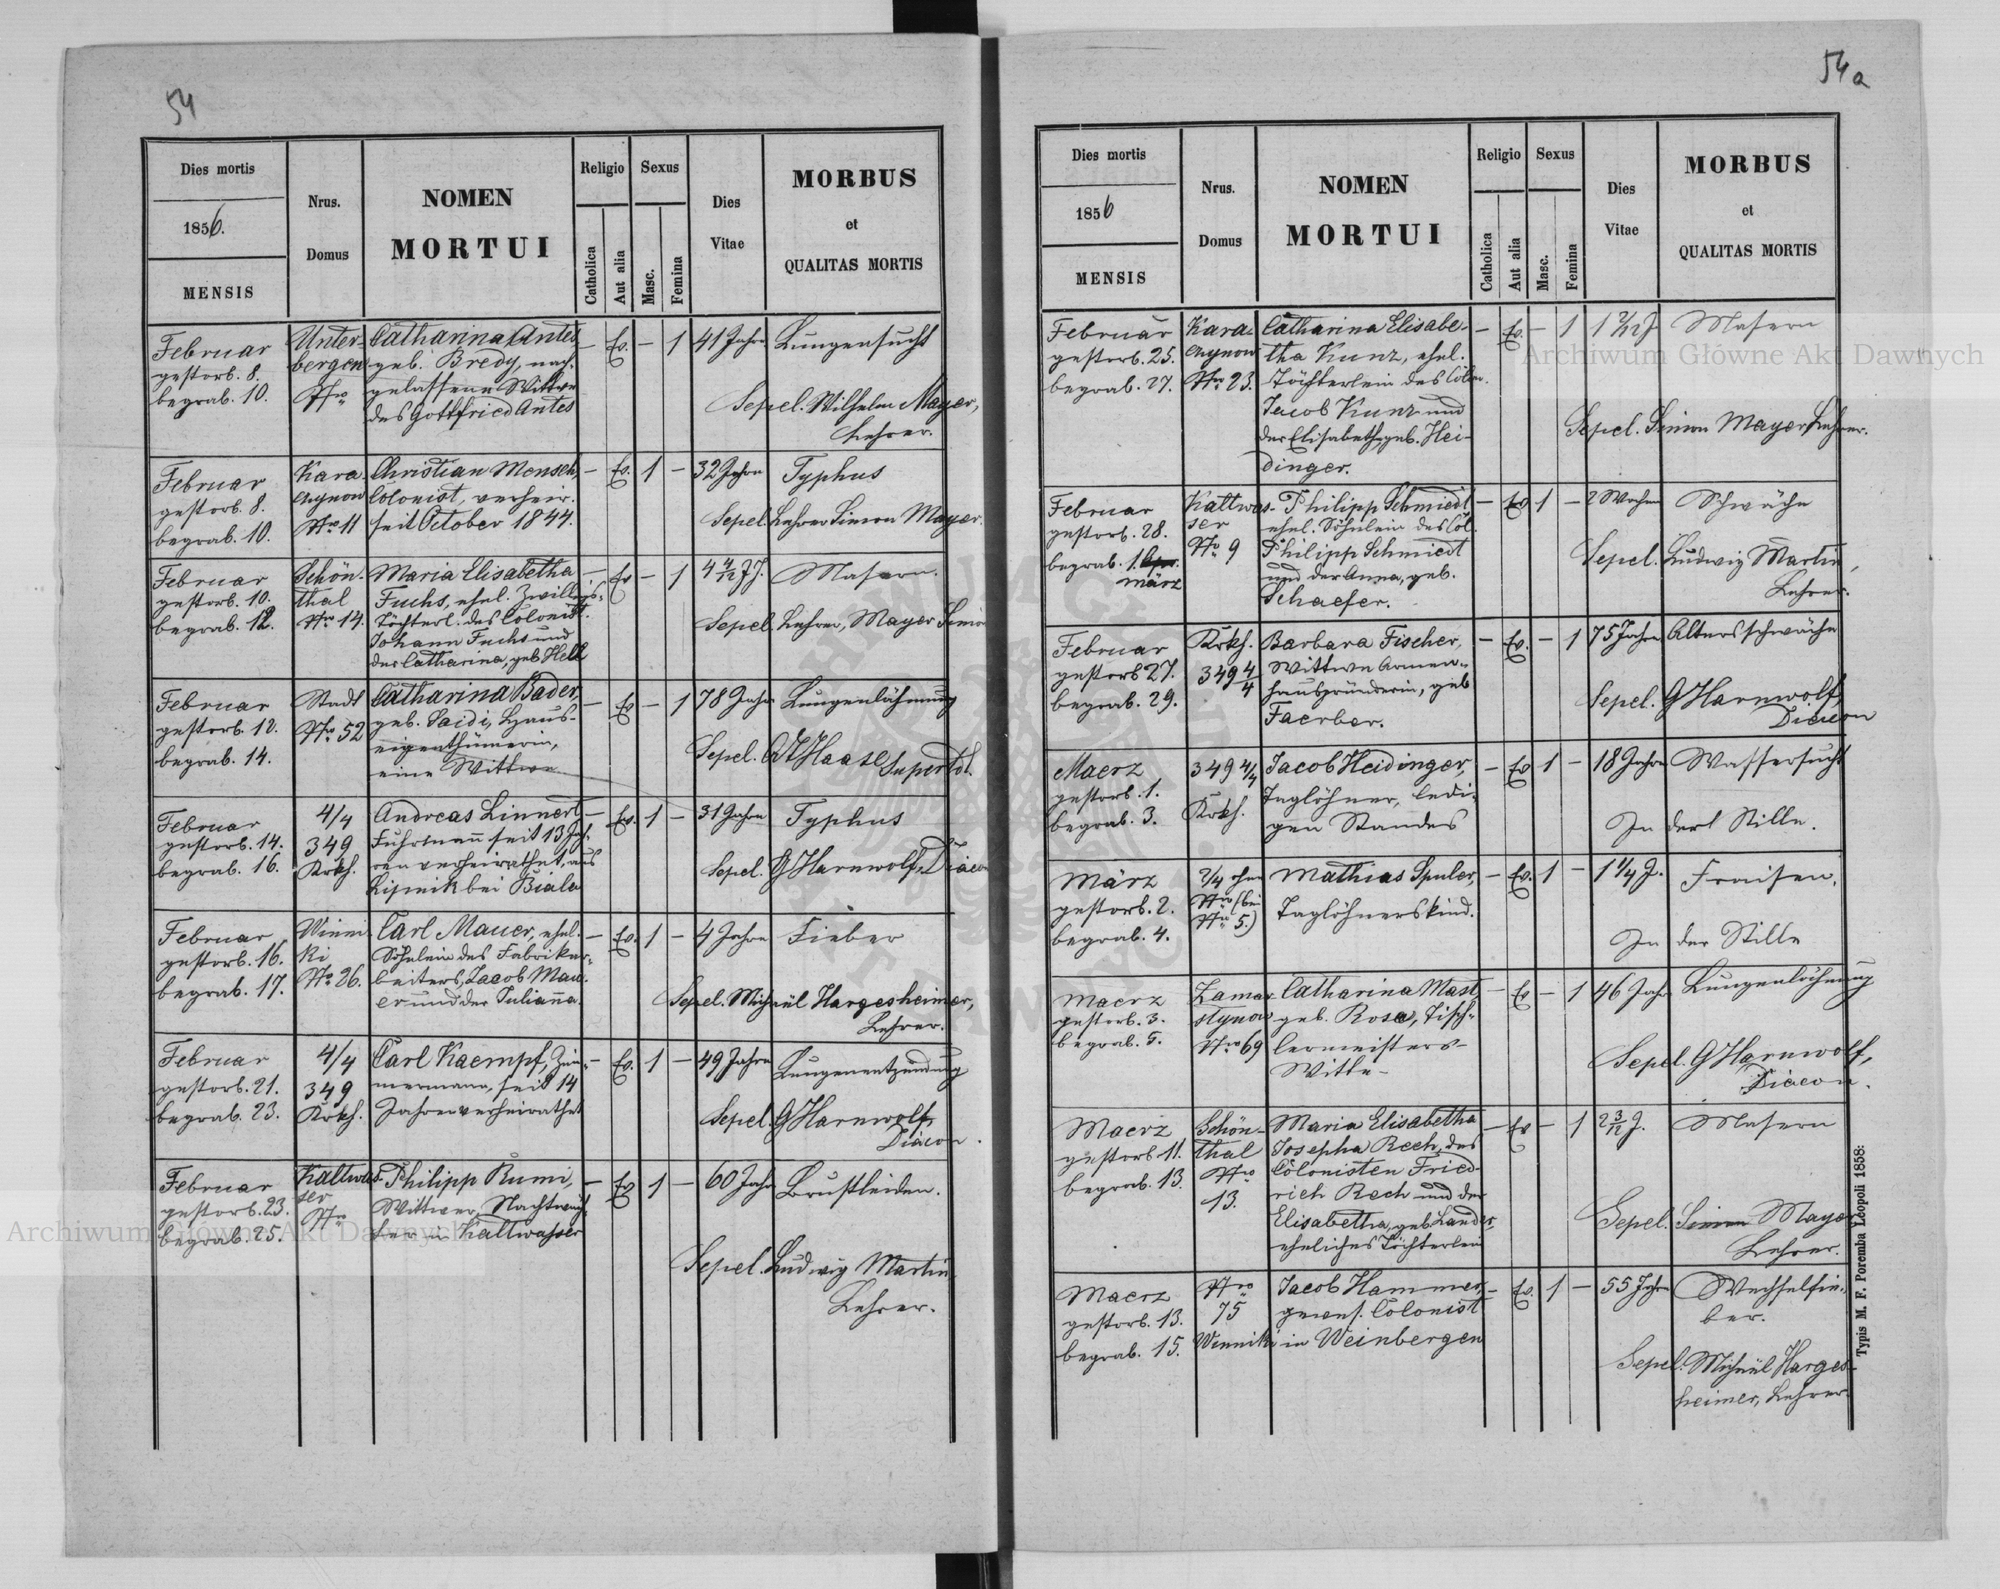 54
Dies mortis
1856.
MENSIS
Nrus.
Domus
NOMEN
MORTUI
Religio
Catholica
Aut alia
Sexus
Masc.
Femina
Dies
Vitae
MORBUS
et
QUALITAS MORTIS
Februar
gestorb. 8.
begrab. 10.
Unter-
bergen
Nro
Catharina Antes
geb. Bredy, nach-
gelassene Wittwe
des Gottfried Antes
— Ev. — 1 41 Jahre Lungensucht
Sepel. Wilhelm Mayer,
Lehrer.
Februar
gestorb. 8.
begrab. 10.
Kara
czynow
Nro 11
Christian Mensch,
Colonist, verheir.
seit October 1844.
— Ev. 1 — 32 Jahre Typhus
Sepel. Lehrer Simon Mayer.
Februar
gestorb. 10.
begrab. 12.
Schön-
thal
Nro 14.
Maria Elisabetha
Fuchs, ehel. Zwillings-
töchterl. des Colonist.
Johann Fuchs und
der Catharina, geb. Hell
— Ev — 1 4 4/12 J. Masern.
Sepel. Lehrer, Mayer Simon
Februar
gestorb. 12.
begrab. 14.
Stadt
Nro 52
Catharina Bader,
geb. Saidi, Haus-
eigenthümerin,
eine Wittwe
— Ev — 1 78 Jahre Lungenlähmung
Sepel. Haase Supertdt.
Februar
gestorb. 14.
begrab. 16.
4/4
349
Krkh.
Andreas Linnert
Fuhrmann seit 13 Jah-
ren verheirathet, aus
Lipnik bei Biala
— Ev. 1 — 31 Jahre Typhus
Sepel. G Harnwolf, Diacon
Februar
gestorb. 16.
begrab. 17.
Winni
ki
Nro 26.
Carl Mauer, ehel.
Söhnlein des Fabrikar-
beiters, Jacob Mau-
er und der Julianna
— Ev. 1 — 4 Jahre Fieber
Sepel. Michael Hargesheimer,
Lehrer.
Februar
gestorb. 21.
begrab. 23.
4/4
349
Krkh.
Carl Kaempf, Zim-
mermann, seit 14
Jahren verheirathet
— Ev. 1 — 49 Jahre Lungenentzündung
Sepel. G Harnwolf,
Diacon.
Februar
gestorb. 23.
begrab. 25.
Kaltwas-
ser
Nro
Philipp Rumi,
Wittwer, Nachtwäch-
ter in Kaltwasser
— Ev 1 — 60 Jahre Brustleiden.
Sepel. Ludwig Martin
Lehrer.
54a
Dies mortis
1856
MENSIS
Nrus.
Domus
NOMEN
MORTUI
Religio
Catholica
Aut alia
Sexus
Masc.
Femina
Dies
Vitae
MORBUS
et
QUALITAS MORTIS
Februar
gestorb. 25.
begrab. 27.
Kara
czynow
Nro 23.
Catharina Elisabe-
tha Kunz, ehel.
Töchterlein des Colon.
Jacob Kunz und
der Elisabeth, geb. Hei-
dinger.
— Ev. — 1 1 2/12 J. Masern
Sepel. Simon Mayer Lehrer.
Februar
gestorb. 28.
begrab. 1.
März
Kaltwas-
ser
Nro 9
Philipp Schmiedt
ehel. Söhnlein des Col.
Philipp Schmiedt
und der Anna, geb.
Schaefer.
— Ev 1 — 2 Wochen Schwäche
Sepel. Ludwig Martin,
Lehrer.
Februar
gestorb 27.
begrab. 29.
Krkh.
349 4/4
Barbara Fischer,
Wittwe Armen-
hauspfründerin, geb
Faerber.
— Ev. — 1 75 Jahre Altersschwäche
Sepel. G Harnwolf,
Diacon
Maerz
gestorb. 1.
begrab. 3.
349 4/4
Krkh.
Jacob Heidinger,
Taglöhner, ledi-
gen Standes
— Ev 1 — 18 Jahre Wassersucht
In der Stille.
März
gestorb. 2.
begrab. 4.
2/4 ohne
Nro (bei
Nro 5.)
Mathias Spuler,
Taglöhnerskind.
— Ev. 1 — 1 1/4 J. Fraisen.
In der Stille
Maerz
gestorb. 3.
begrab. 5.
Zamar
stynow
Nro 69
Catharina Mast,
geb. Rosa, Tisch-
lermeisters-
Witte-
— Ev — 1 46 Jahre Lungenlähmung
Sepel. G Harnwolf,
Diacon.
Maerz
gestorb 11.
begrab. 13.
Schön-
thal
Nro
13.
Maria Elisabetha
Josepha Rech, des
Colonisten Fried-
rich Rech und der
Elisabetha, geb. Lander
eheliches Töchterlein
— Ev — 1 2 3/12 J. Masern
Sepel. Simon Mayer
Lehrer.
Maerz
gestorb. 13.
begrab. 15.
Nro
75
Winniki
Jacob Hammer,
gewes. Colonist
in Weinbergen
— Ev. 1 — 55 Jahre Wechselfie-
ber.
Sepel. Michael Harges-
heimer, Lehrer.
Typis M. F. Poremba Leopoli 1858:
Archiwum Główne Akt Dawnych
Archiwum Główne Akt Dawnych